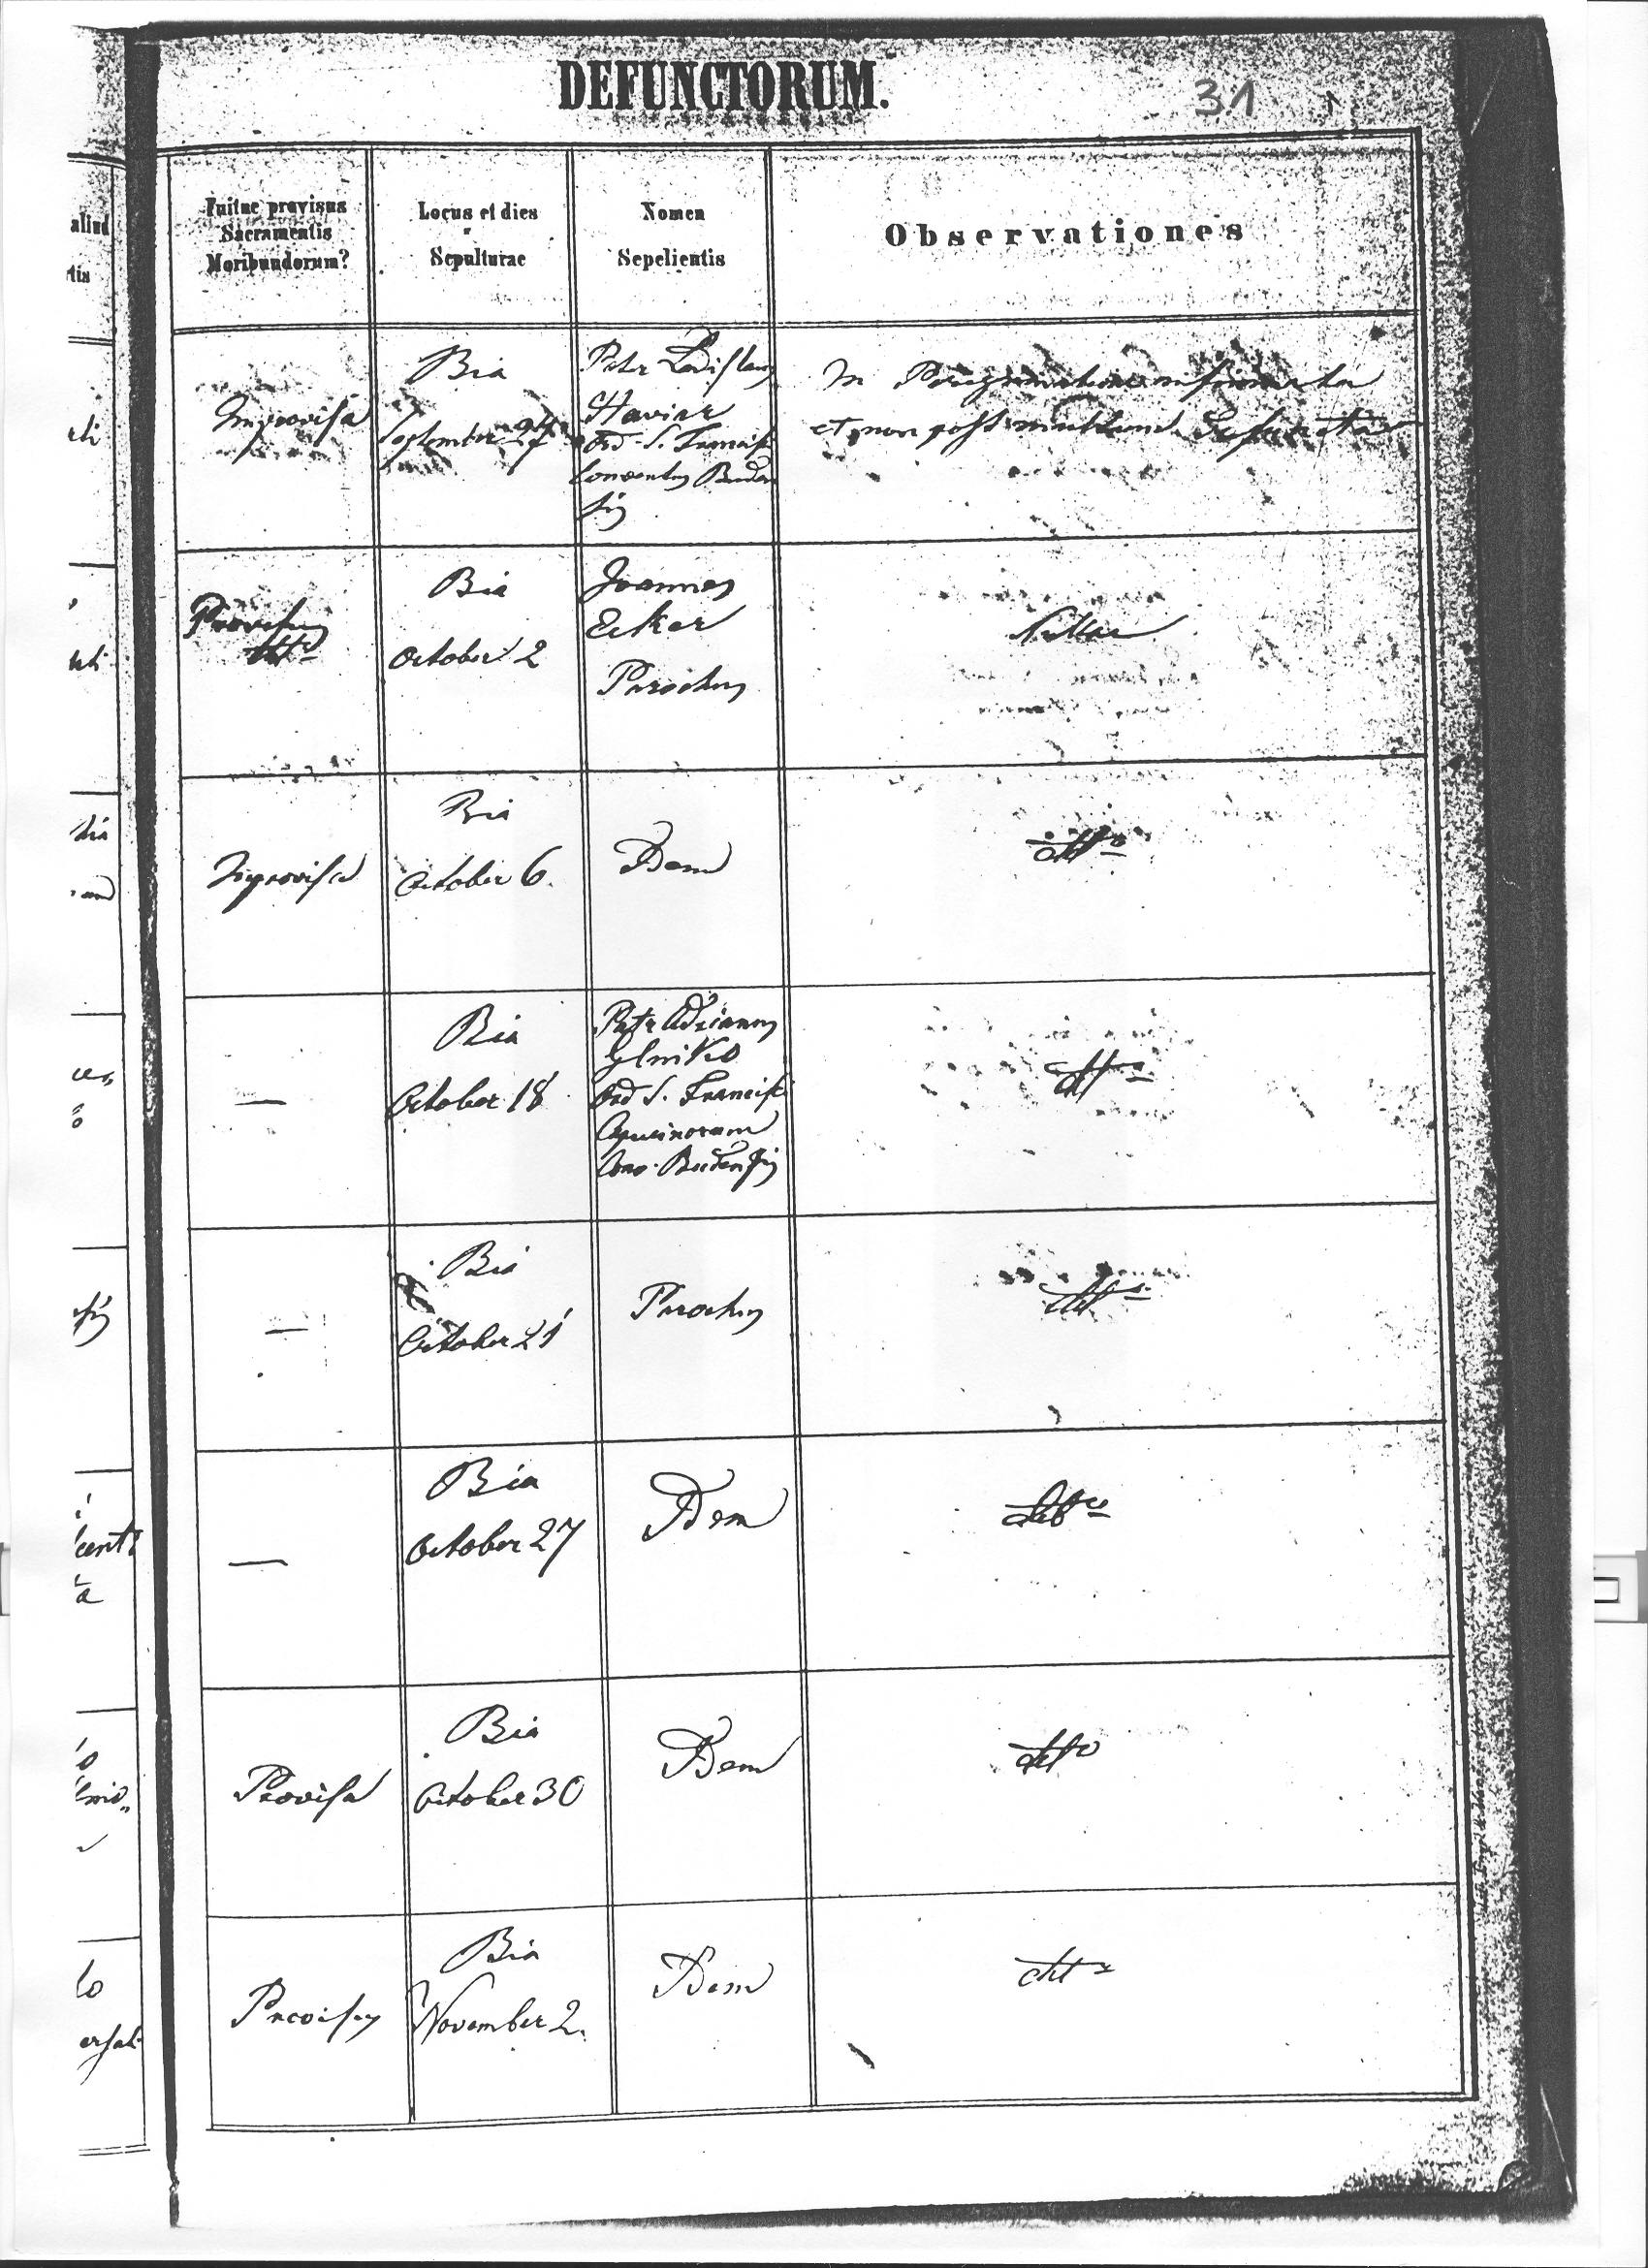 DEFUNCTORUM.
31
Fuitne provisus
Sacramentis
Moribundorum?
Locus et dies
Sepulturae
Nomen
Sepelientis
Observationes
aliud
tis
Improvisa
Bia
September 27
Patr Ladislaus
Ord. S. Francisc
Conventus Buden
sis
In Peregrinatione infirmata
et non post multum defuncta
Provisus
Bia
October 2
Joannes
Ecker
Parochus
Nullae
Improvisa
Bia
October 6.
Idem
dtto
—
Bia
October 18
Patr Adrianus
Ord S. Francisc
Capucinorum
Conv. Budensis
dtto
—
Bia
October 21
Parochus
dtto
—
Bia
October 27
Idem
dtto
Provisa
Bia
October 30
Idem
dtto
Provisus
Bia
November 2.
Idem
dtto